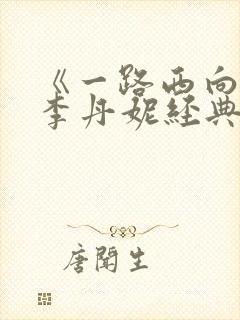 《一路西向
李丹妮经典
唐闻生